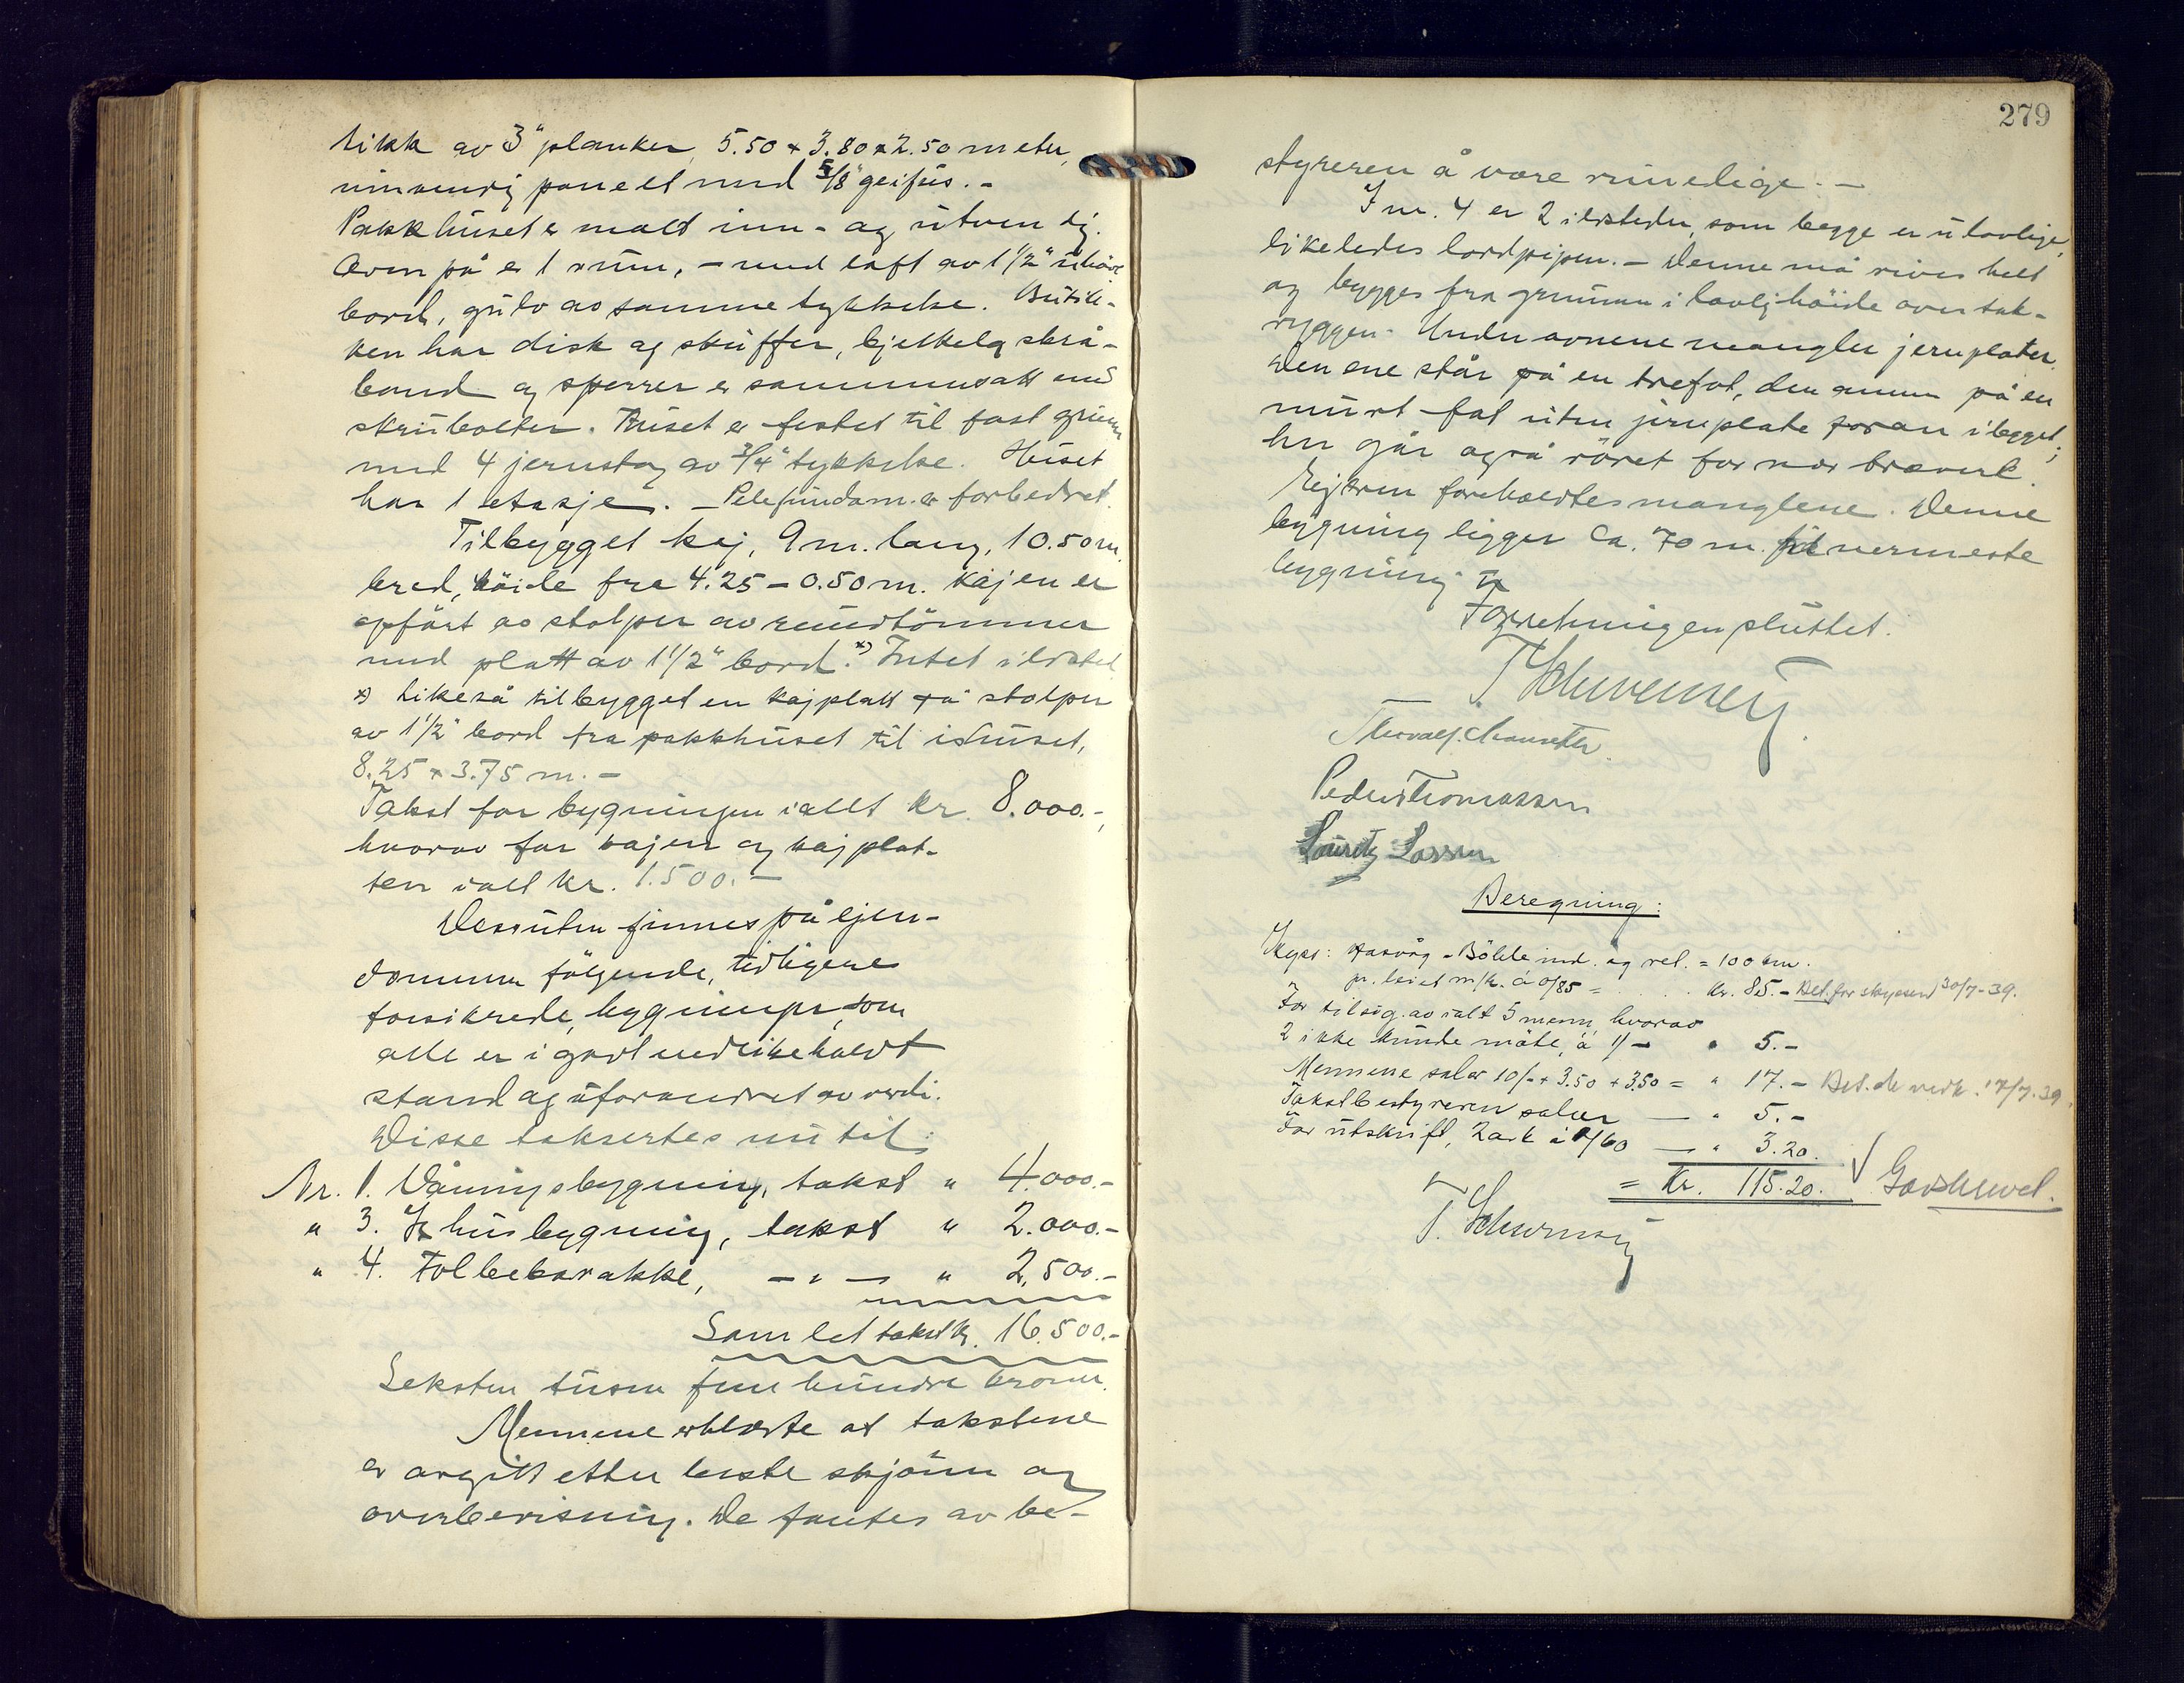 tikk av 3" planker 5.50 x 3.80 x 2.50 meter,
innvendig panelt med 5/8" geifus. -
Pakkhuset er malt inn- og utvendig.
Oven på er 1 rum, - med loft av 1 1/2" uhøvl.
bord, gulv av samme tykkelse. Butik-
ken har disk og skuffer, bjelkelag skrå-
bånd og sperrer er sammensatt med
skrubolter. Huset er festet til fast grunn
med 4 jernstag av 3/4" tykkelse. Huset
har 1 etasje. - Pelefundam. er forbedret.
Tilbygget kaj, 9 m. lang, 10.50 m.
bred, höide fra 4.25 - 0.50 m. Kajen er
opfört av stolper av rundtömmer
med platt av 1 1/2" bord. x) Intet ildsted
x) Likeså tilbygget en kajplatt på stolper
av 1 1/2" bord fra pakkhuset til ishuset,
8.25 x 3.75 m. -
Takst for bygningen ialt kr. 8.000.-,
hvorav for kajen og kajplat-
ten ialt kr. 1.500. -
Dessuten finnes på ejen-
dommen fölgende, tidligere
forsikrede, bygninger, som
alle er i godt vedlikeholdt
stand og uforandret av verdi.
Disse taksertes nu til:
Nr. 1. Våningsbygning, takst " 4.000.-
" 3. Ishusbygning, takst " 2.000.-
" 4. Folkebarakke, - " - " 2.500.-
Samlet takst kr. 16.500.-
Seksten tusen fem hundre kroner.
Mennene erklærte at takstene
er avgitt etter beste skjönn og
overbevisning. De fantes av be-
279
styreren å være rimelige. -
I nr. 4 er 2 ildsteder, som begge er ulovlige,
likeledes lordpipen. - Denne må rives helt
og bygges fra grunnen i lovlig höide over tak-
ryggen. Under ovnene mangler jernplater.
Den ene står på en trefot, den annen på en
murt fot uten jernplate foran i begget;
her går også röret for nær treverk.
Ejeren foreholdtes manglene. Denne
bygning ligger ca. 70 m. fra nermeste
bygning
Forretningen sluttet.
T Schwensen
Thorvalf.
Peder Thomassen
Lauritz Larsen
Beregning:
Skyss: Hasvåg - Bölle ind. og ret. = 100 km.
pr. leiet m/k. á 0/85 = . . . kr. 85.- Bet. for skyssen 30/7-39.
For tilsig. av ialt 5 menn, hvorav
2 ikke kunde möte, á 1/- " 5.-
Mennene salær 10/- + 3.50 + 3.50 = " 17.- Bet. de vedk. 17/7.39.
Takstbestyreren salær - " 5.-
For utskrift, 2 ark á 1/60 - " 3.20.
= Kr. 115.20.
T. Schwensen